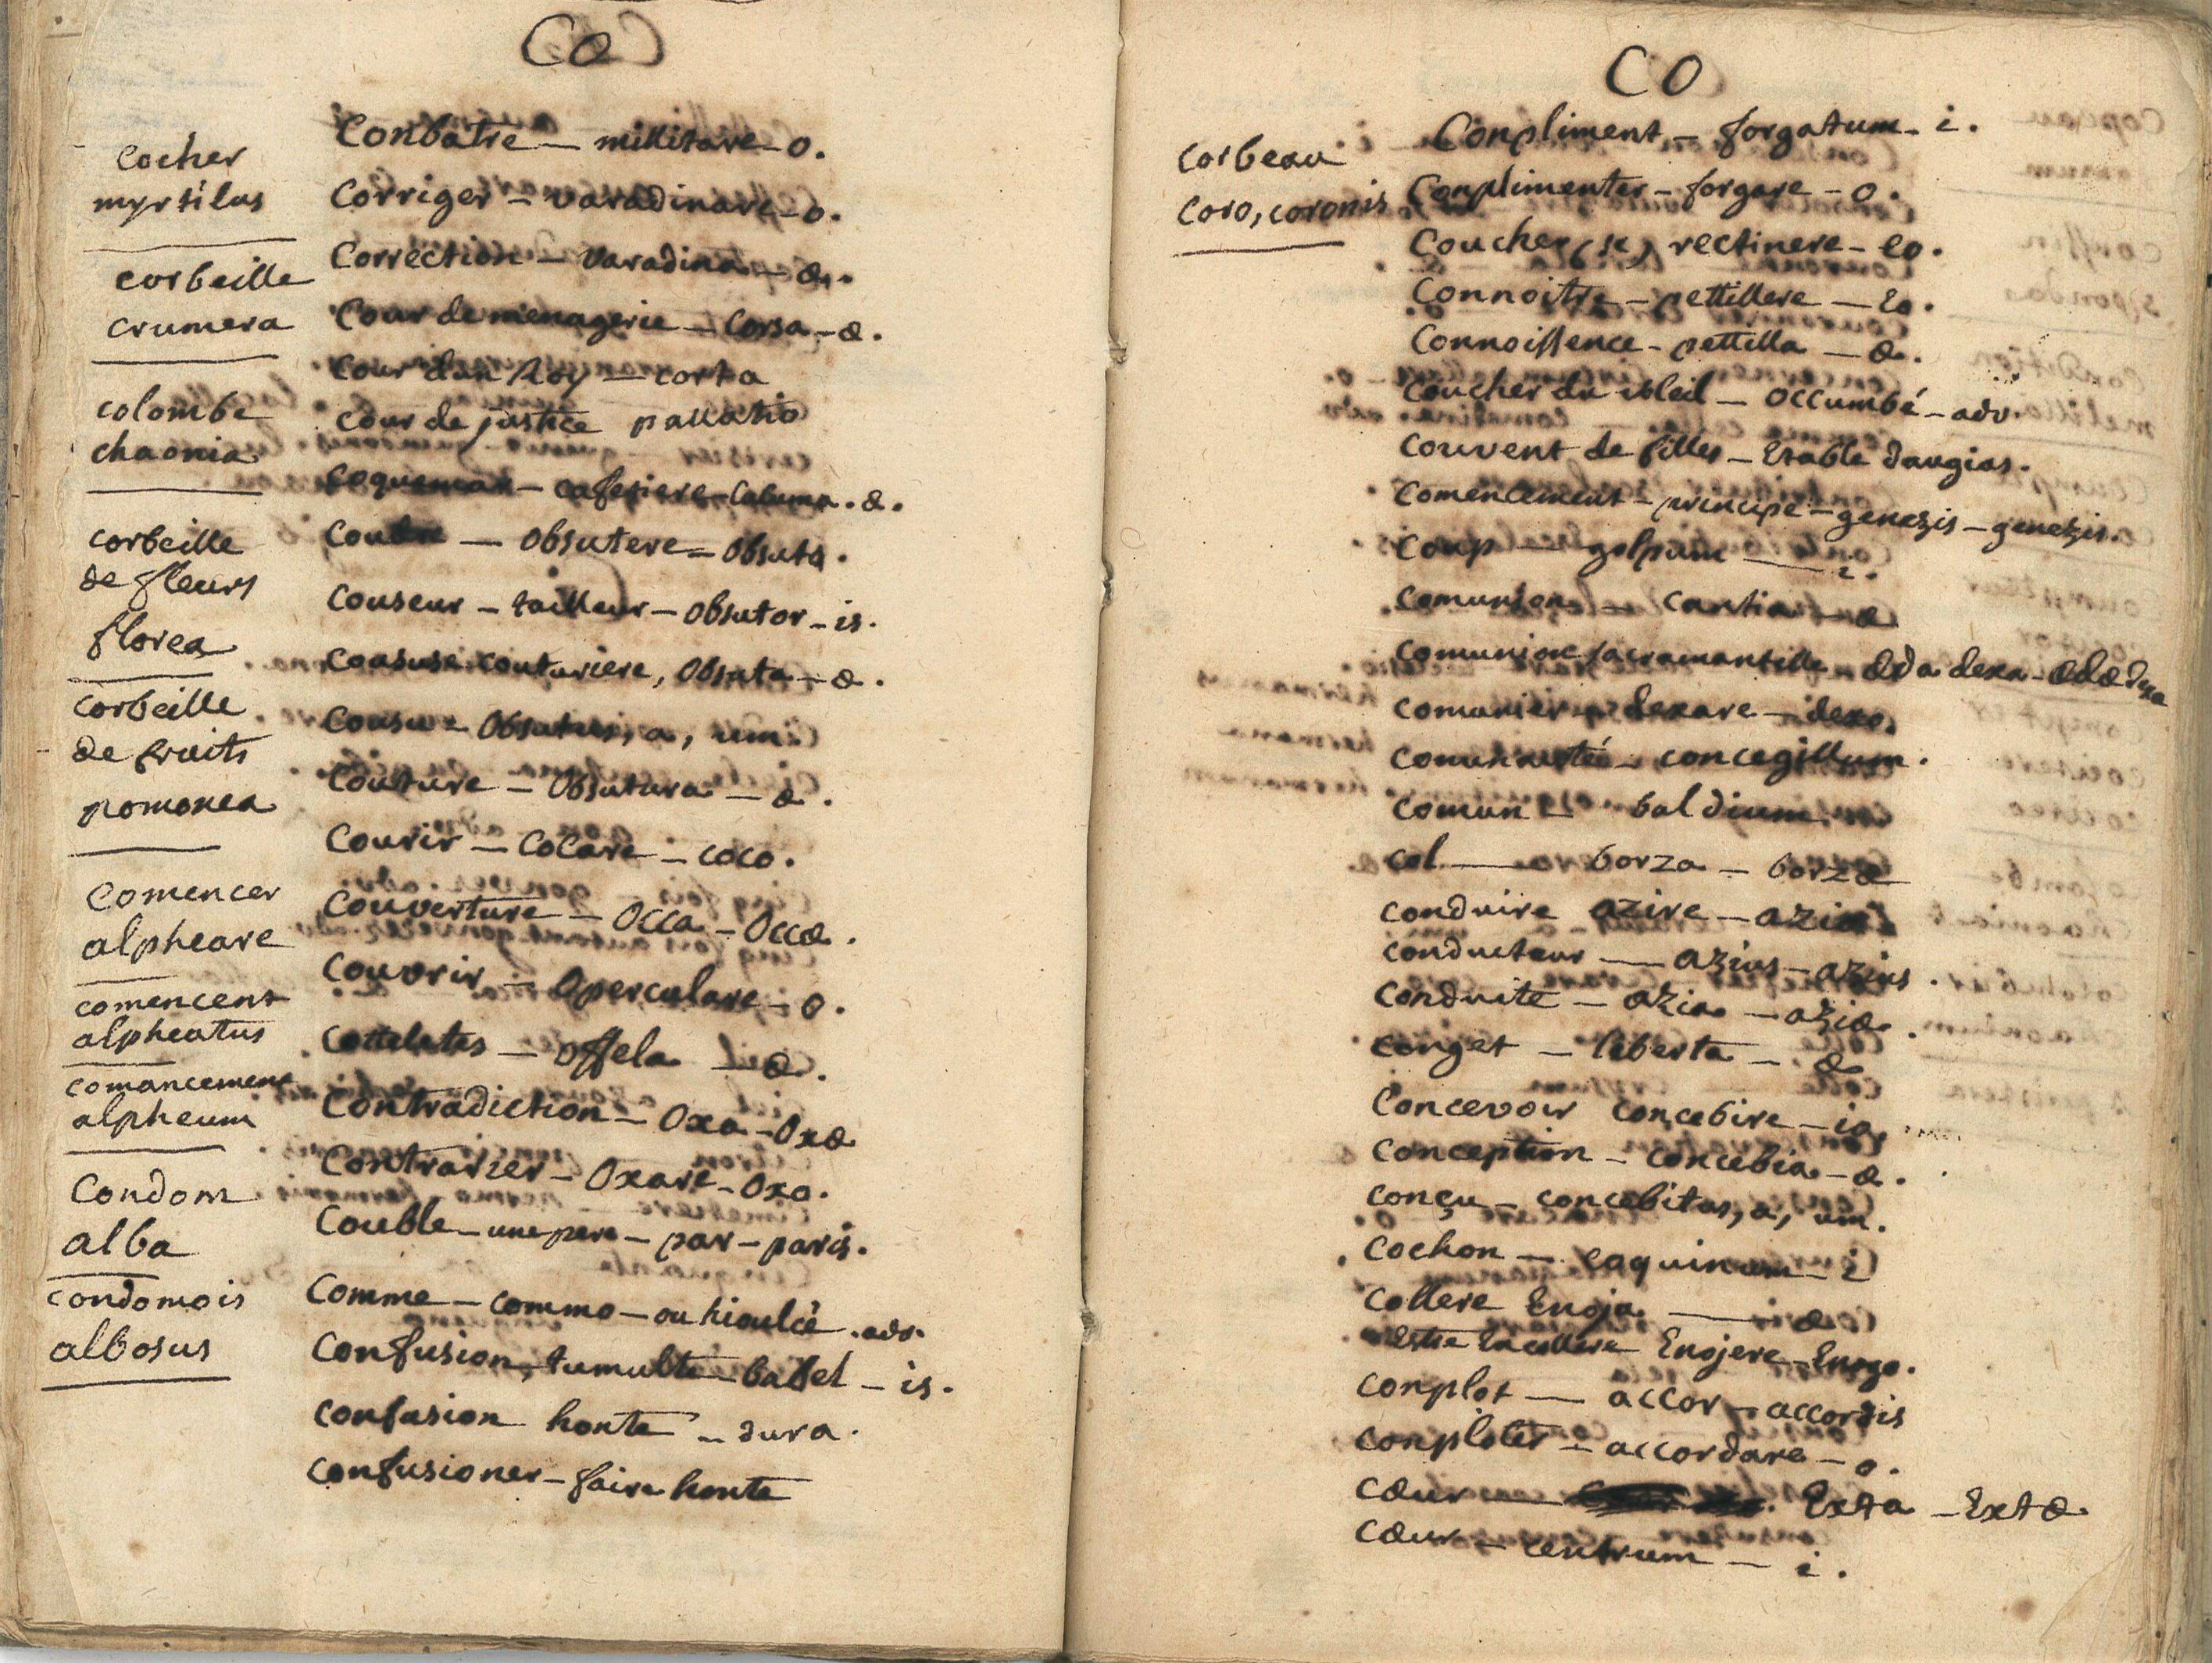 Co
cocher
myrtilus
corbeille
crumera
colombe
chaonia
corbeille
de fleurs
florea
corbeille
de fruits
pomonea
comencer
alpheare
comencent
alpheatus
comancement
alpheum
Condom
alba
condomois
albosus
Conbatre — millitare - o.
Corriger — varadinare - o.
Correction — varadina - æ.
Cour de menagerie — Corsa - æ.
Cour dun Roy — corta
Cour de justice pallatio
cafetiere - . æ.
— obsutere = obsuto.
Couseur — tailleur — obsutor - is.
couturiere, obsuta - æ.
Cousu = obsutus, a, um.
Couture — obsutura - æ.
Courir — Cocare — coco.
Couverture — Occa - Occæ.
Couvrir — operculare - o.
Cottelates — offela - æ.
Contradiction — Oxa - Oxæ
Contrarier — Oxare - Oxo.
Couble — une pere — par - paris.
Comme — commo — ou hioulcè . adv.
Confusion, tumulte — babel - is.
confusion honte — dura.
confusioner — faire honte
CO
corbeau
coro, coronis
Conpliment — forgatum - i.
Conplimenter — forgare - o.
Coucher (se) rectinere - eo.
Connoitre — pettillere — Eo.
Connoissence — pettilla — æ.
Coucher du soleil — occumbé - adv.
Couvent de filles — Etable daugias.
Comencement — principe — genezis — genezis.
Coup — golpum — i.
Comunion — cantia - æ
Comunion sacramantelle æda dexa - ædæ dexæ
Comunier — dexare — dexo.
Comunnotée — concegillum.
Comun — baldium.
Col — borza — borzæ
conduire azire — azio.
conducteur — azius - azius.
Conduite — azia — aziæ.
Conget — liberta — æ
Concevoir concebire — io.
Conception — concebia - æ.
Conçu — concebitus, a, um.
Cochon — caquinum - i
Collere Enoja — æ
Estre En collere Enojere - Enojo.
Conplot — accor - accordis
Conploter — accordare - o.
Cœur — Exta - Extæ
Cœur — centrum — i.